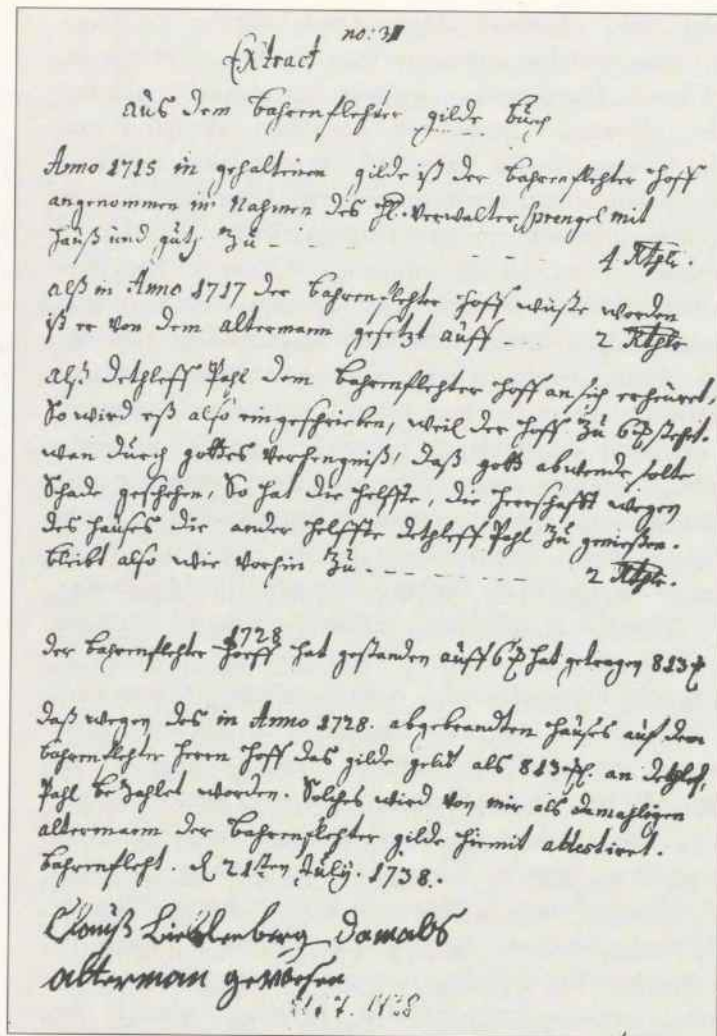 no: 3
Extract
aus dem Bahrenflehter gilde buch
Anno 1715 in gehaltenen gilde ist der Bahrenflehter Hoff
angenommen im Nahmen des HE. Verwalter Sprengel mit
Hauß und guth zu - - - - 4 Rthlr.
alß in Anno 1717 der Bahrenflehter Hoff wüste worden
ist er von dem altermann gesetzt auff - - 2 Rthlr
alß Dethleff Pahl dem Bahrenflehter Hoff an sich erheuret,
So wird eß also eingeschrieben, weil der Hoff zu 6 ꝑ stehet.
wan durch gottes Verhengniß, daß gott abwende solte
Schade geschehen, So hat die helffte, die Herrschafft wegen
des Hauses die ander helffte Dethleff Pahl zu genießen.
bleibt also wie vorhin zu - - - - - - - 2 Rthlr.
1728
der Bahrenflehter Hoeff hat gestanden auff 6 ꝑ hat getragen 813 ꝑ
Daß wegen des in Anno 1728. abgebrandten Hauses auf dem
Bahrenflehter Herrn Hoff das gilde gelt als 813 an Dethlef,
Pahl bezahlet worden. Solches wird von mir als damahligen
altermann der Bahrenflehter gilde hiermit attestiret.
Bahrenfleht. d 21ten July. 1738.
Clauß damals
alterman gewesen